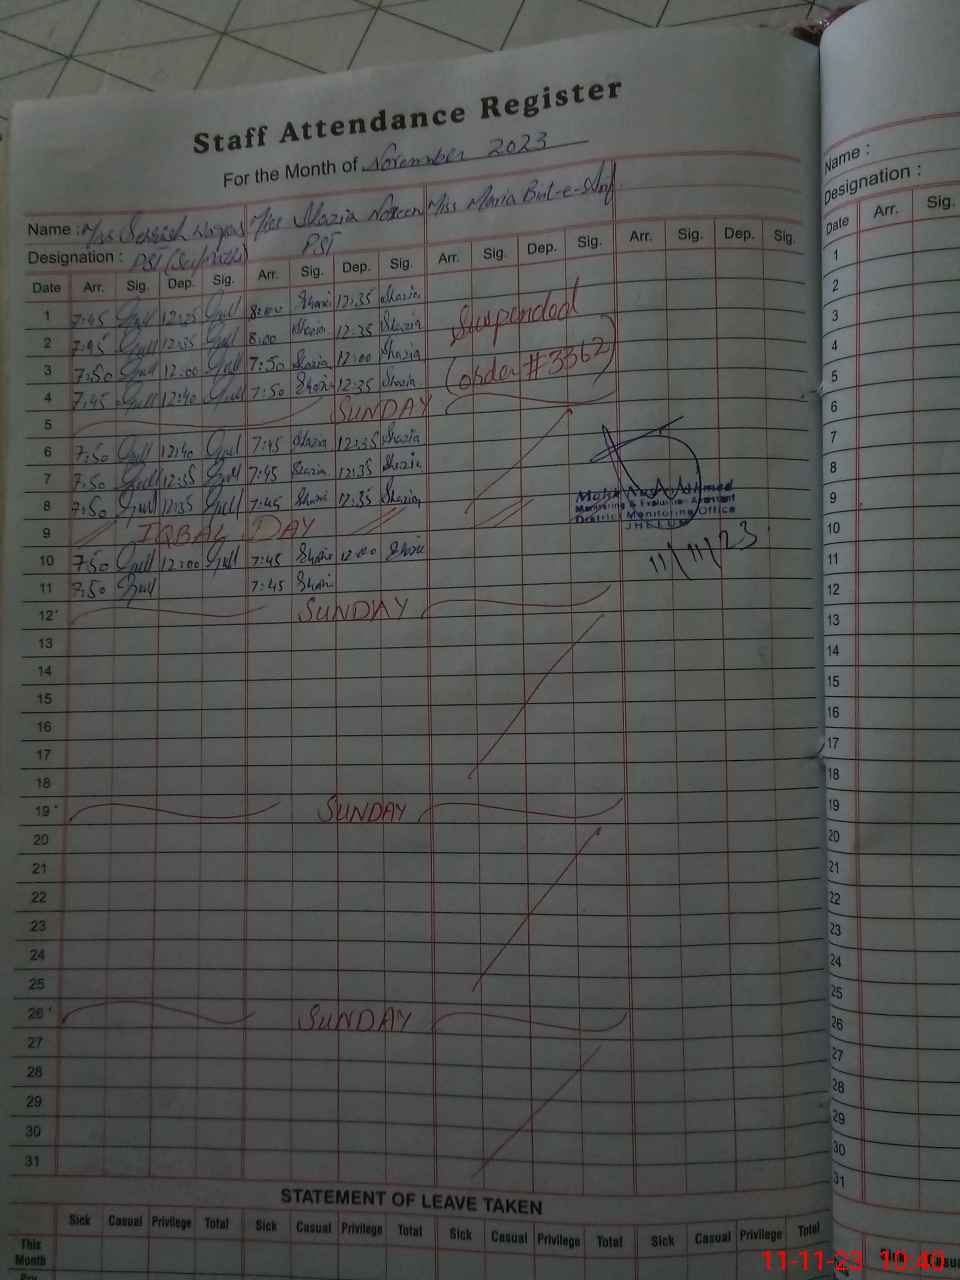 Staff Attendance Register
For the Month of November 2023
Name : Miss Miss Shazia Noreen Miss Maria
Designation : PST PST
Date Arr. Sig. Dep. Sig. Arr. Sig. Dep. Sig. Arr. Sig. Dep. Sig. Arr. Sig. Dep. Sig.
1 7:45 Gull 12:35 Gull 8:00 Shazia 12:35 Shazia
Suspended
2 7:45 Gull 12:35 Gull 8:00 Shazia 12:35 Shazia
3 7:50 Gull 12:00 Gull 7:50 Shazia 12:00 Shazia
(order #3362)
4 7:45 Gull 12:40 Gull 7:50 Shazia 12:35 Shazia
5 SUNDAY
6 7:50 Gull 12:40 Gull 7:45 Shazia 12:35 Shazia
7 7:50 Gull 12:35 Gull 7:45 Shazia 12:35 Shazia
8 7:50 Gull 12:35 Gull 7:45 Shazia 12:35 Shazia
Ahmed
Monitoring & Evaluation Assistant
District Monitoring Office
JHELUM
9 IQBAL DAY
11/11/23
10 7:50 Gull 12:00 Gull 7:45 Shazia 12:00 Shazia
11 7:50 Gull 7:45 Shazia
12 SUNDAY
13
14
15
16
17
18
19 SUNDAY
20
21
22
23
24
25
26 SUNDAY
27
28
29
30
31
STATEMENT OF LEAVE TAKEN
Sick Casual Privilege Total Sick Casual Privilege Total Sick Casual Privilege Total Sick Casual Privilege Total
This
Month
Name :
Designation :
Date Arr. Sig.
1
2
3
4
5
6
7
8
9
10
11
12
13
14
15
16
17
18
19
20
21
22
23
24
25
26
27
28
29
30
31
Sick
11-11-23 10:40